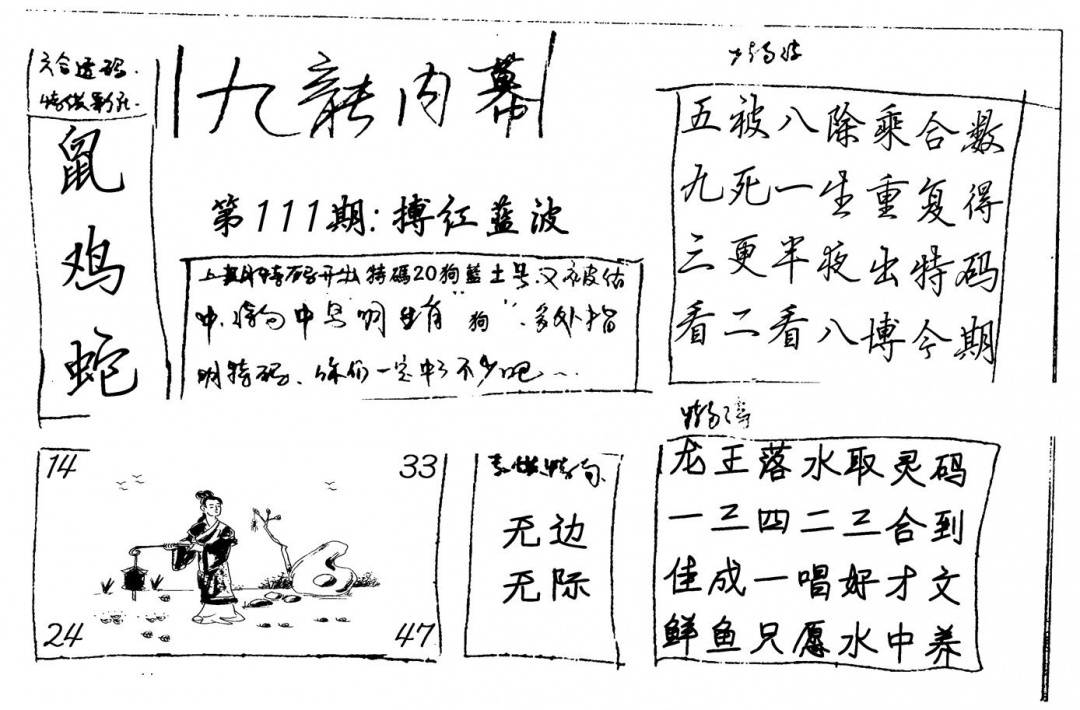 六合透码
鼠
鸡
蛇
九龍内幕
第111期:搏红蓝波
上期特码开出特碼20狗藍土号.又被估
中,特句中号明生肖"狗",多处指
明特码、你们一定中了不少吧~
五被八除乘合数
九死一生重复得
三更半夜出特码
看二看八博今期
14
33
24
47
无边
无际
龙王落水取灵码
一三四二三合到
佳成一唱好才文
鲜鱼只愿水中养